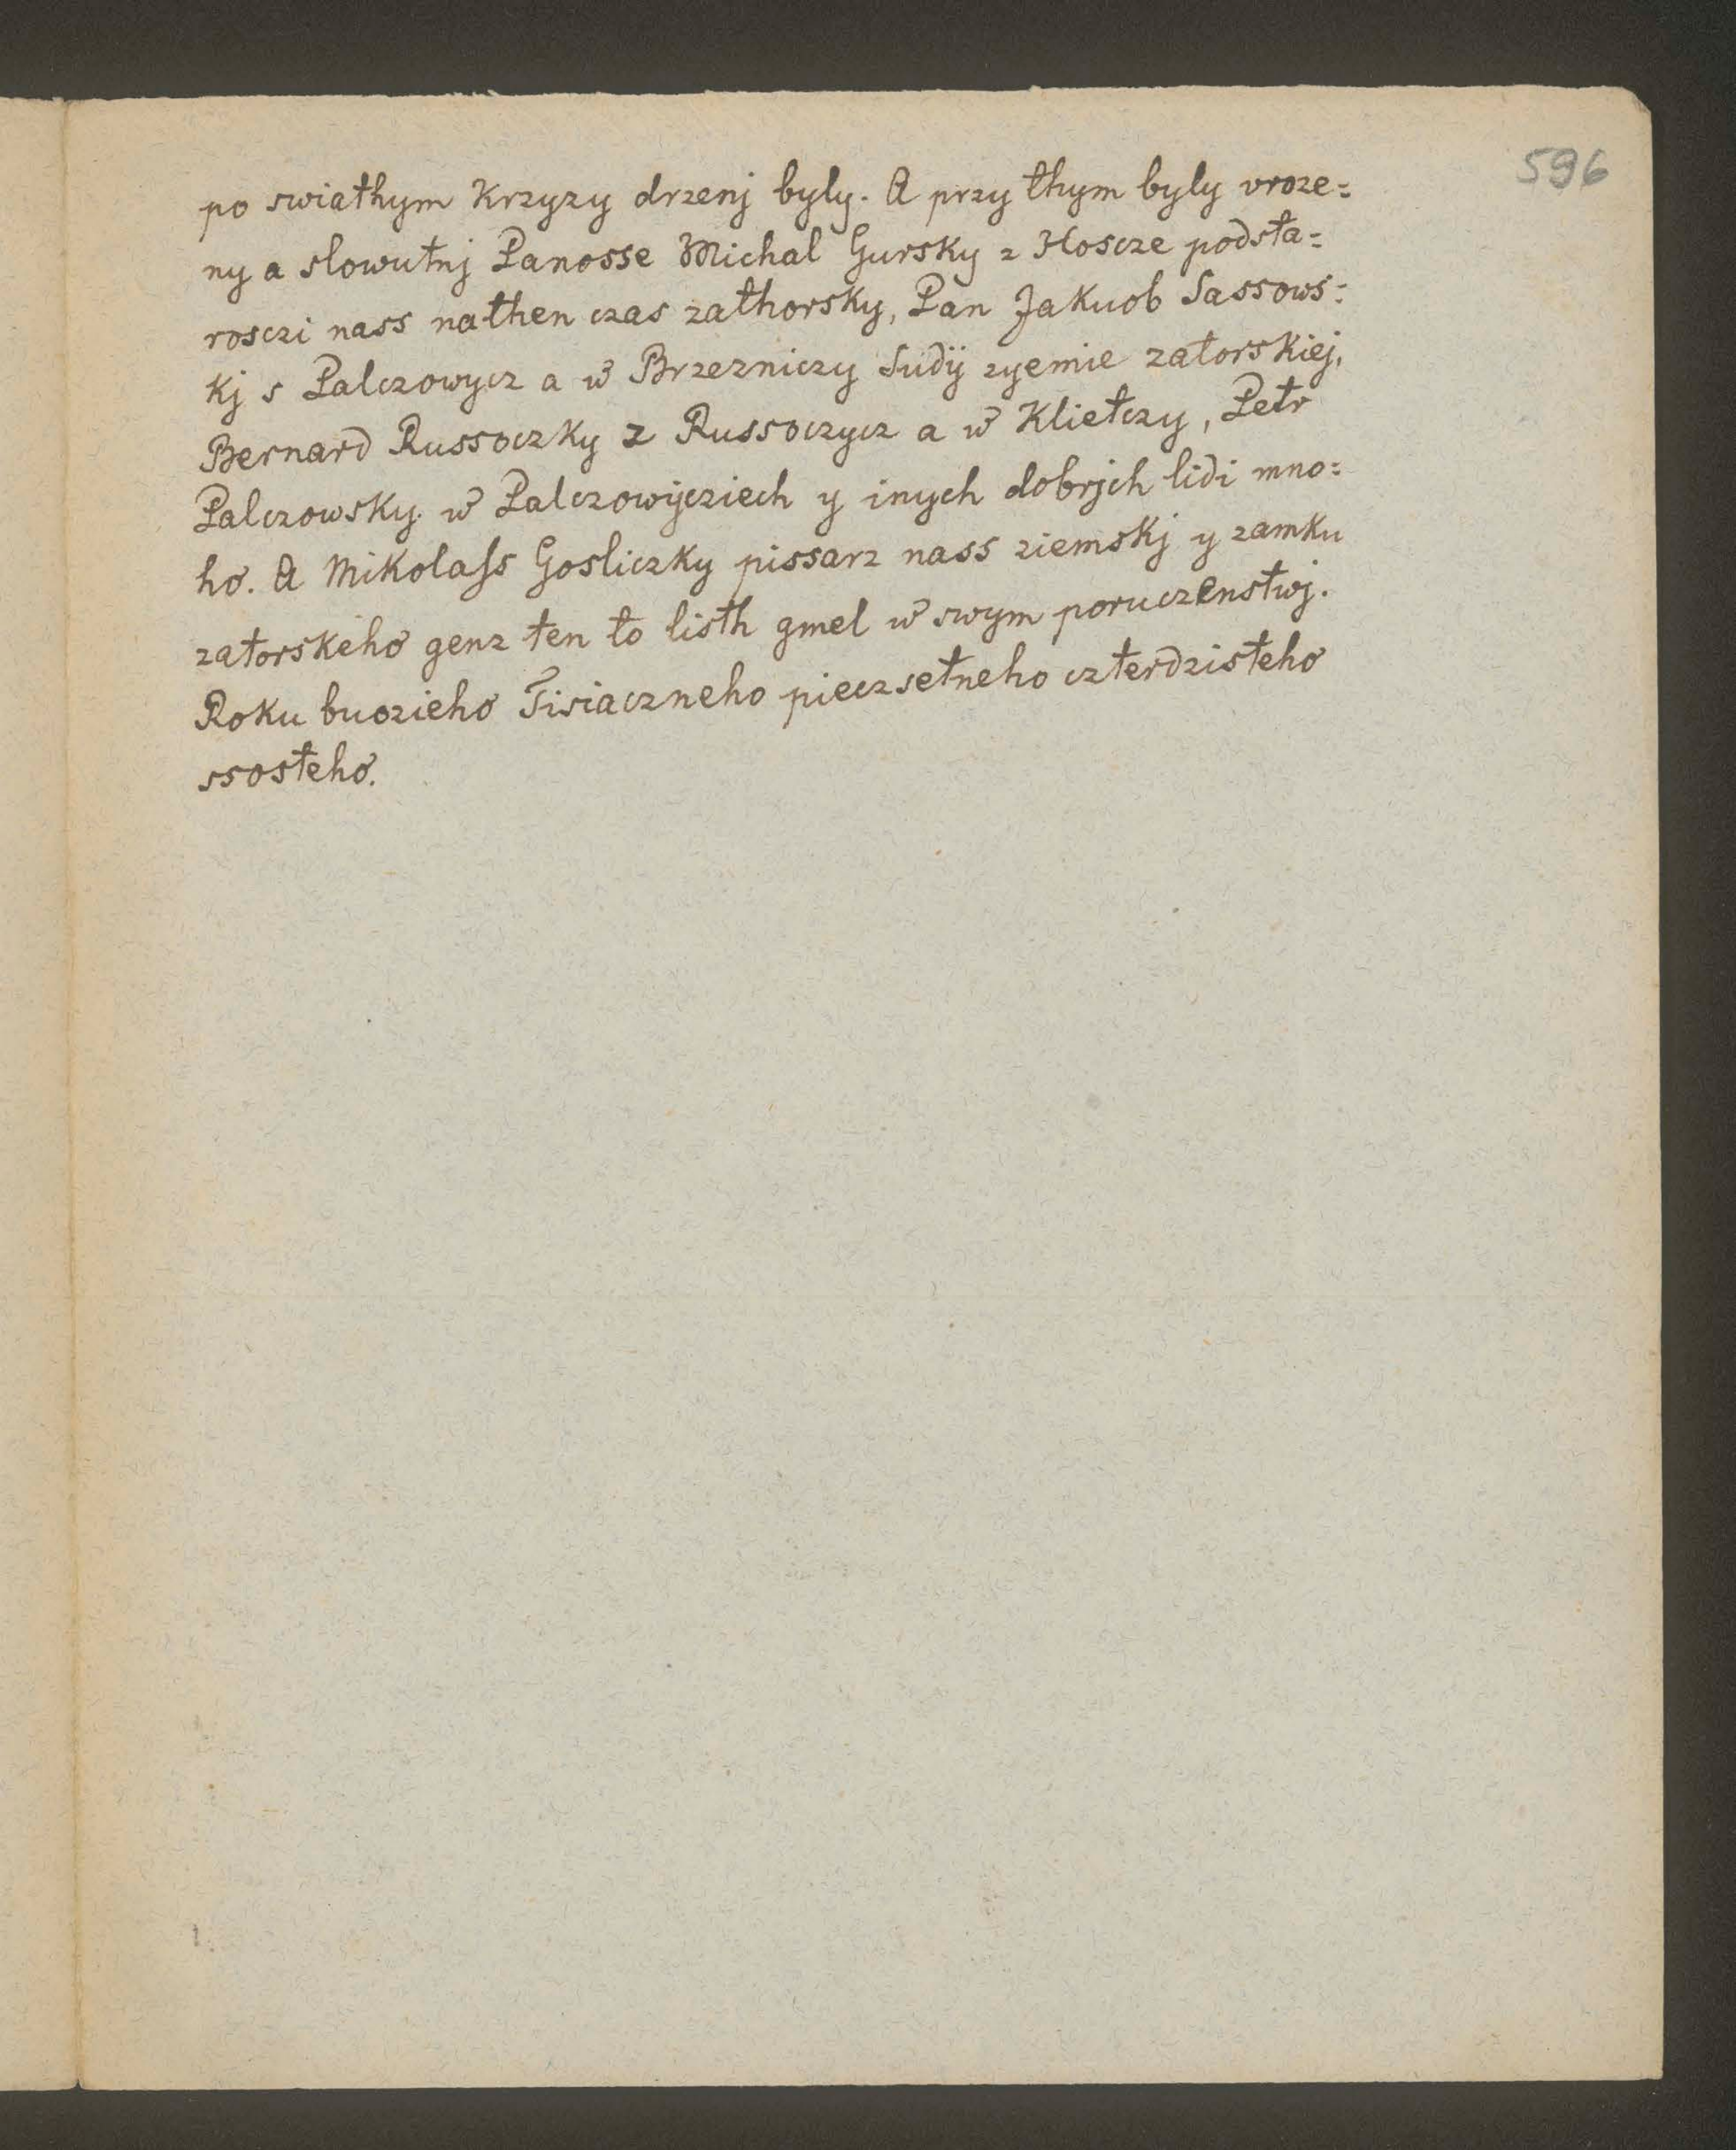 596
po swiathym Krzyzy drzenj byly. A przy thym byly vroze=
ny a slowutnj Panosse Michal Gursky z Hoscze podsta=
rosczi nass nathen czas zathorsky, Pan Jakuob Sassows=
kj s Palczowycz a w Brzezniczy Sudÿ zyemie zatorskiej,
Bernard Russoczky z Russoczycz a w Klietczy, Petr
Palczowsky w Palczowÿcziech y inych dobrjch lidi mno=
ho. A Mikolass Gosliczky pissarz nass ziemskj y zamku
zatorskeho genz ten to listh gmel w swym poruczenstwj.
Roku buozieho Tisiaczneho pieczsetneho czterdzisteho
ssosteho.